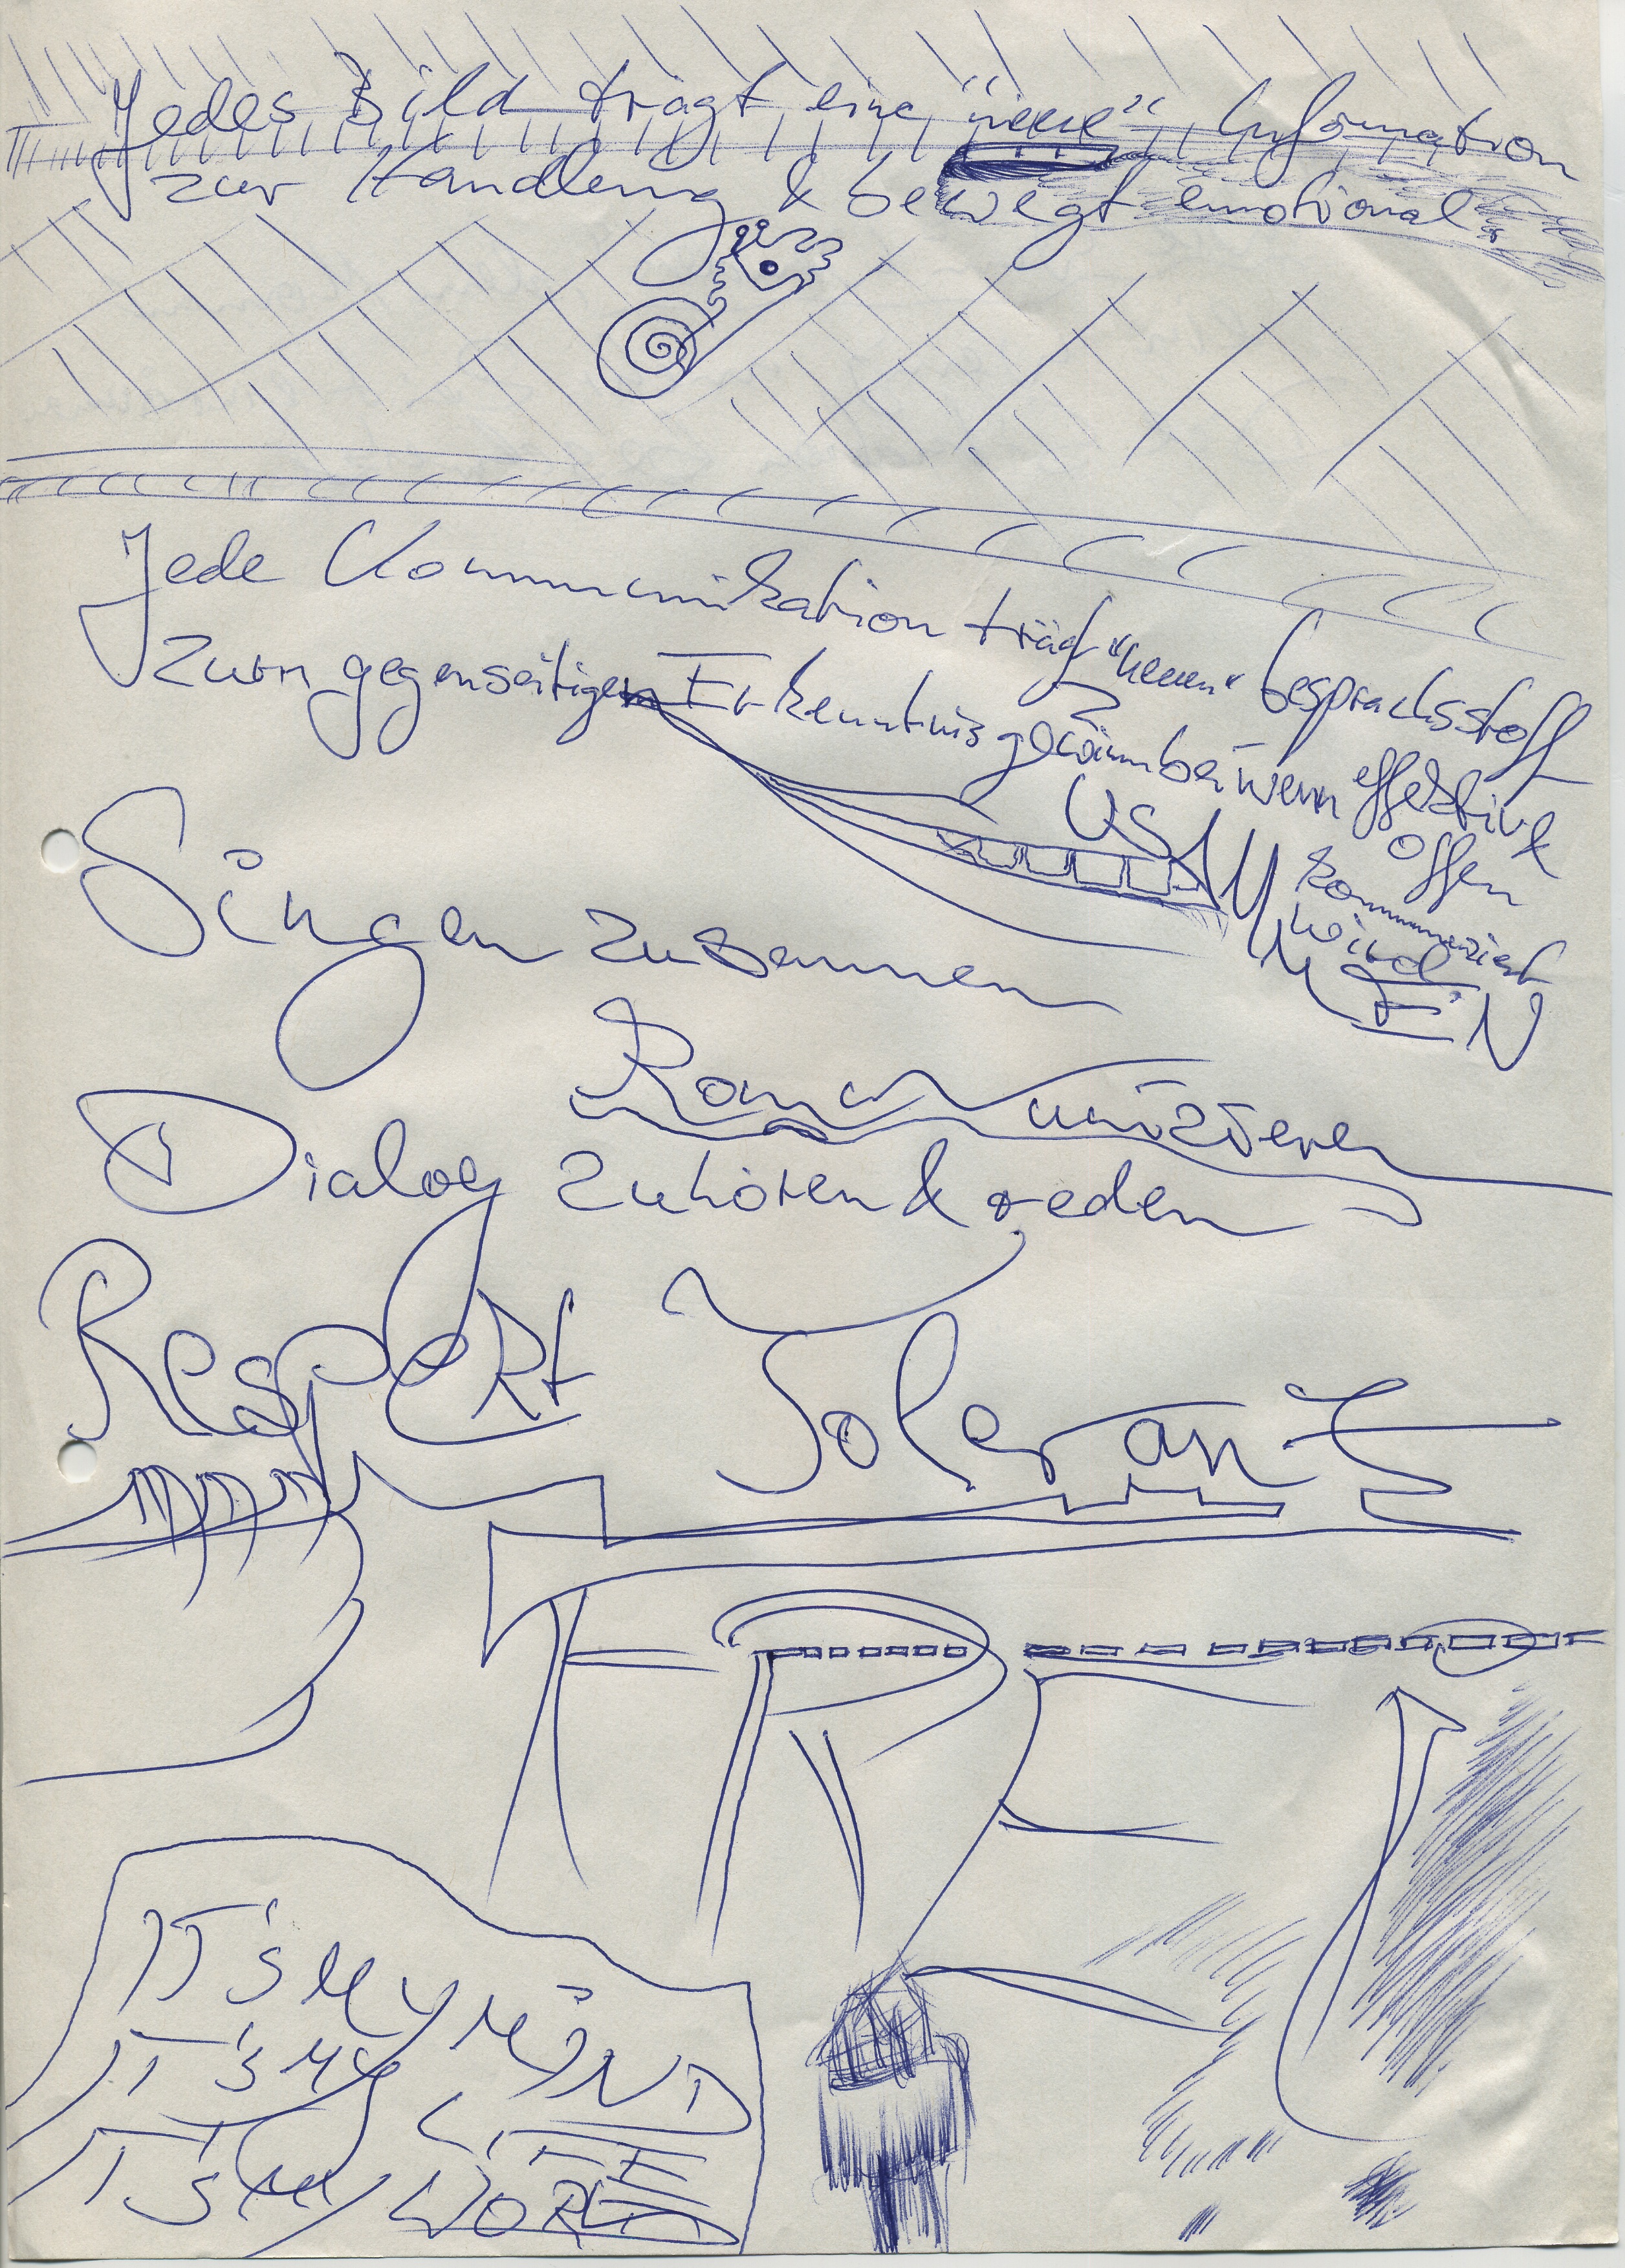 Jedes Bild trägt eine "neue" Information
zur Handlung & bewegt emotional.
Jede Kommunikation trägt "neuen" Gesprachsstoff
Zum gegenseitigen Erkenntnisgewinn bei wenn effektive
offen
kommuniziert
wird.
Singen zusammen
Kommunizieren
Dialog Zuhören & reden
Respekt Toleranz
FREI
IT'S MY MIND
IT'S MY LIFE
IT'S MY WORLD